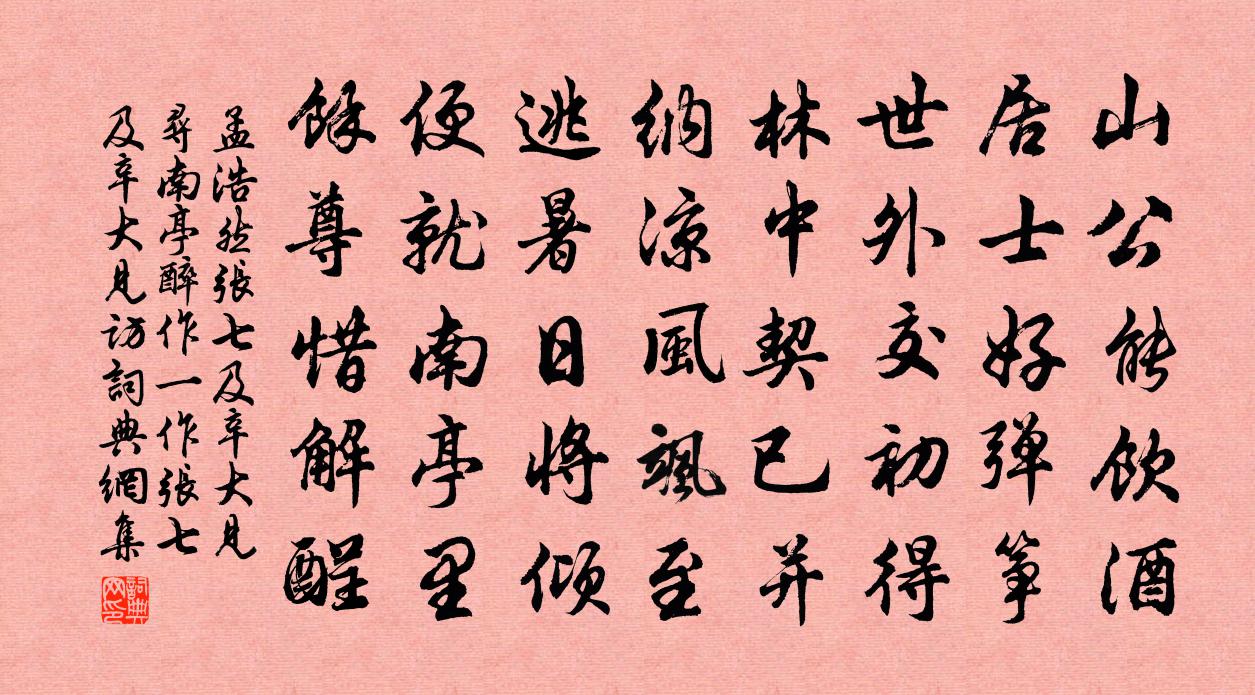 山公能飲酒
居士好弹箏
世外交初得
林中契已并
纳凉風颯至
逃暑日將倾
便就南亭里
餘尊惜解酲
孟浩然張七及辛大見
尋南亭醉作一作張七
及辛大見访詞典網集
詞典网印